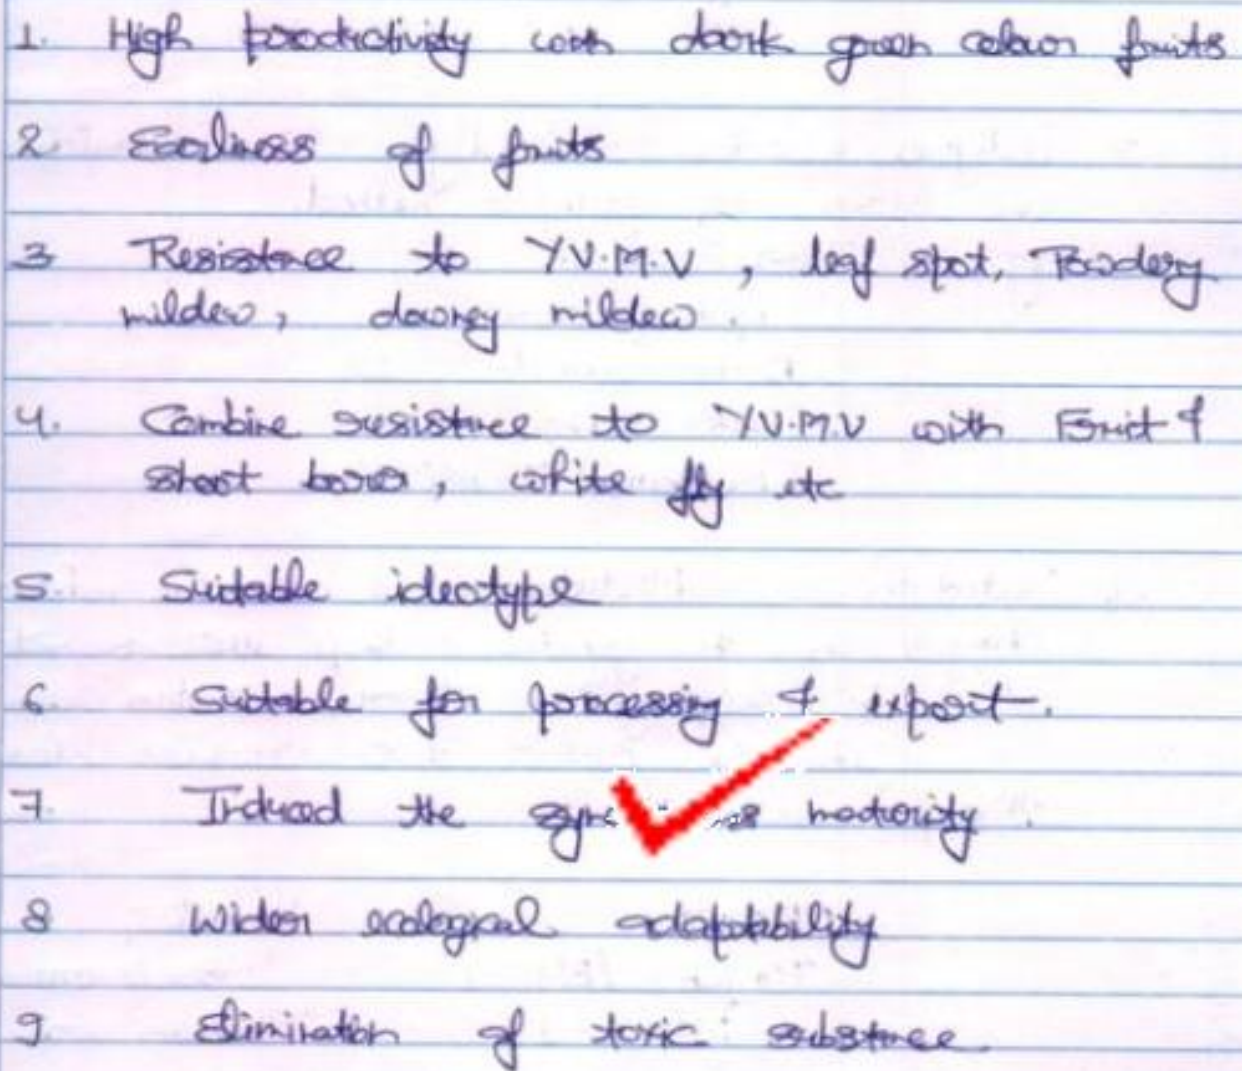 1. High productivity with dark green colour fruits
2. Earliness of fruits
3 Resistance to YV.M.V, leaf spot, Powdery
mildew, downey mildew.
4. Combine resistance to YV.M.V with Fruit &
shoot borer, white fly etc
5. Suitable ideotype
6 Suitable for processing & export.
7. Induced the maturity.
8 Wider ecological adaptability
9. Elimination of toxic substance